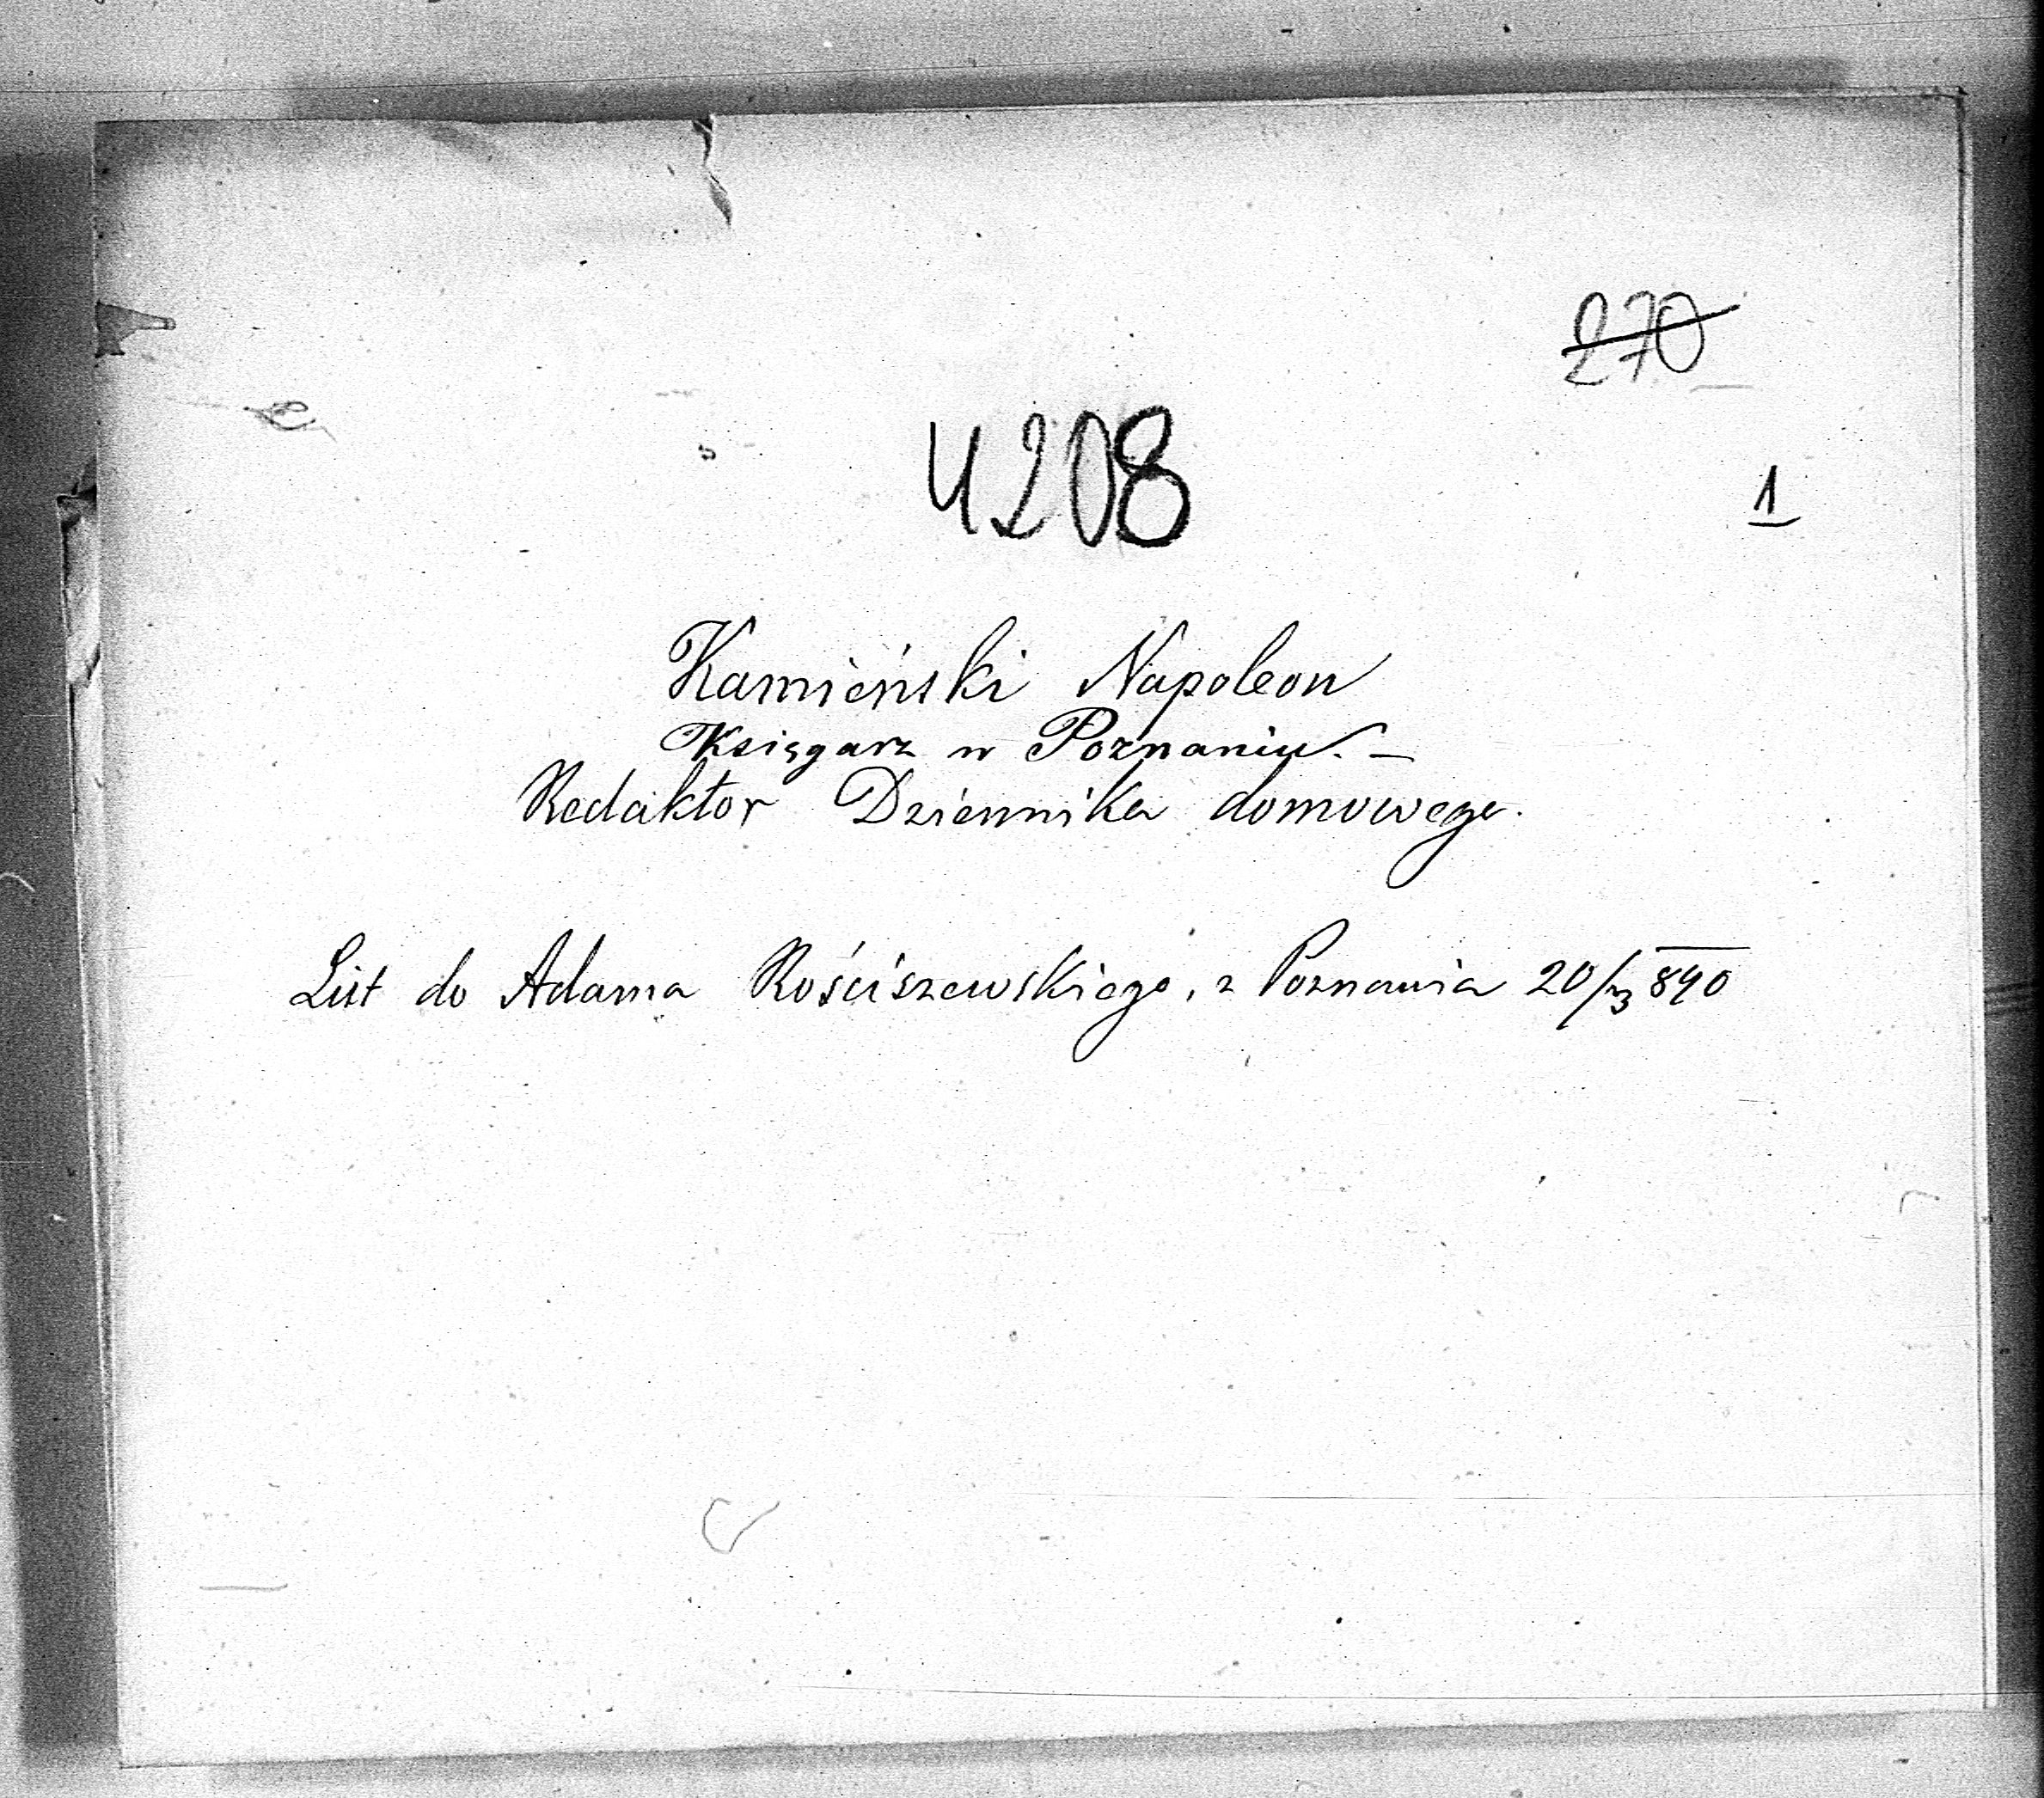 270
4208
1
Kamieński Napoleon
Księgarz w Poznaniu. —
Redaktor Dziennika domowego.
List do Adama Rościszewskiego, z Poznania 20/3 840